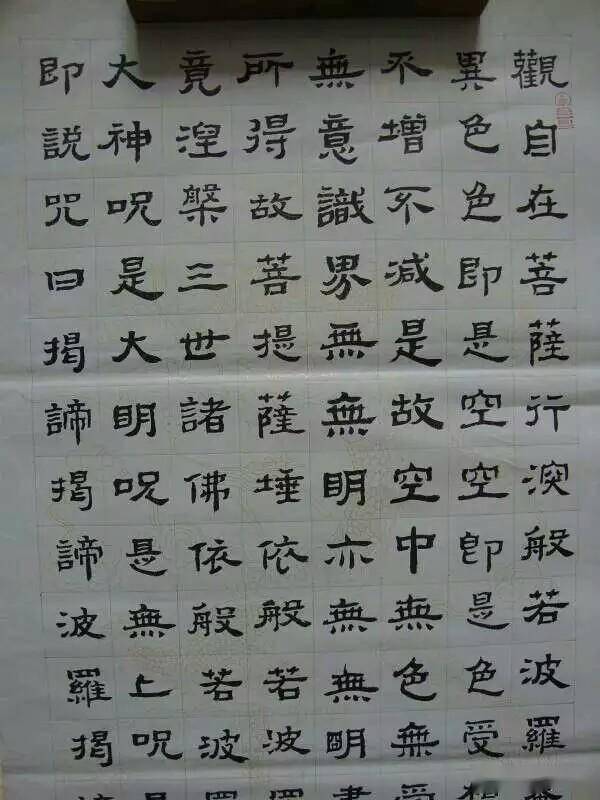 觀自在菩薩行深般若波羅
異色色即是空空即是色受想
不增不減是故空中無色無受
無意識界無無明亦無無明盡
所得故菩提薩埵依般若波羅
竟涅槃三世諸佛依般若波羅
大神呪是大明呪是無上呪是
即說咒曰揭諦揭諦波羅揭諦